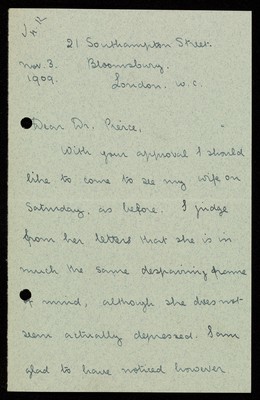 21 Southampton Street.
Nov. 3. Bloomsbury.
1909. London. W.C.
Dear Dr. Pierce,
With your approval I should
like to come to see my wife on
Saturday, as before. I judge
from her letters that she is in
much the same despairing frame
of mind, although she does not
seem actually depressed. I am
glad to have noticed however